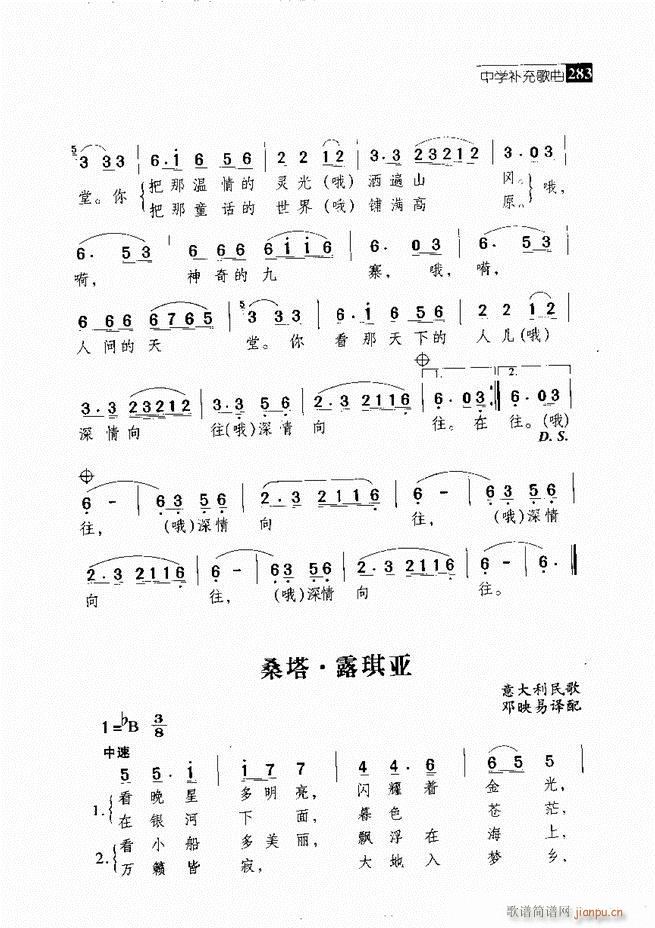 中学补充歌曲 283
5 3 3 3 | 6·i 6 5 6 | 2 2 1 2 | 3·3 2 3 2 1 2 | 3·0 3
堂。你 把那温情的 灵光(哦)洒遍山 冈。哦,
把那童话的 世界(哦)铺满高 原。
6· 5 3 | 6 6 6 6 i i 6 | 6· 6 | 6· 5 3
嗬, 神奇的九 寨,哦,嗬,
6 6 6 6 7 6 5 | 5 3 3 3 | 6·i 6 5 6 | 2 2 1 2
人间的天 堂。你 看那天下的 人儿(哦)
1. 2.
3·3 2 3 2 1 2 | 3·3 5 6 | 2·3 2 1 1 6 | 6·0 3 :| 6·0 3
深情向 往(哦)深情向 往。在 往。(哦)
D.S.
6 - | 6 3 5 6 | 2·3 2 1 1 6 | 6 - | 6 3 5 6
往, (哦)深情 向 往, (哦)深情
2·3 2 1 1 6 | 6 - | 6 3 5 6 | 2·3 2 1 1 6 | 6 - | 6·
向 往, (哦)深情 向 往。
桑塔·露琪亚
意大利民歌
邓映易译配
1=♭B 3/8
中速
5 5·i | i 7 7 | 4 4·6 | 6 5 5
1. 看晚星 多明亮, 闪耀着 金光,
在银河 下面, 暮色 苍茫,
2. 看小船 多美丽, 飘浮在 海上,
万籁皆 寂, 大地入 梦乡,
歌谱简谱网 jianpu.cn